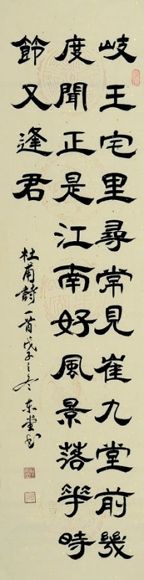 岐王宅里尋常見崔九堂前幾
度聞正是江南好風景落華時
節又逢君
杜甫詩一首戊子之冬东堂书